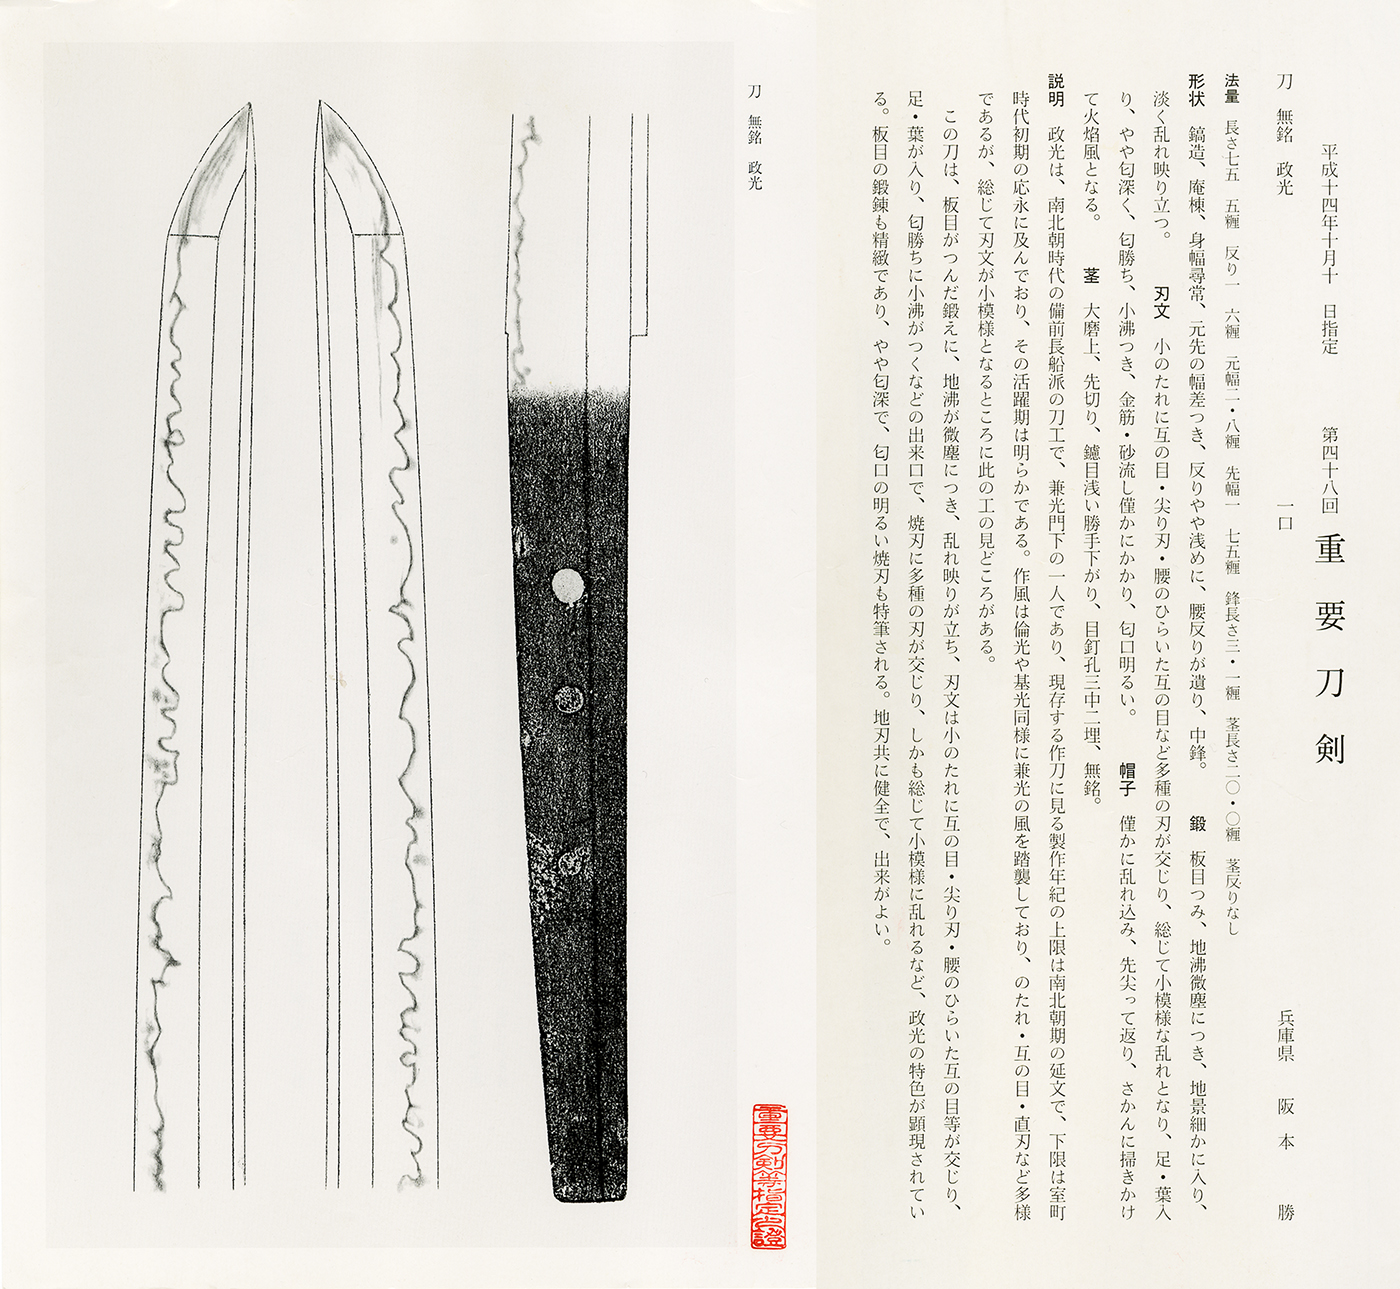 平成十四年十月十 日指定 第四十八回 重要刀剣
刀 無銘 政光 一口 兵庫県 阪本 勝
法量 長さ七五 五糎 反り一 六糎 元幅二・八糎 先幅一 七五糎 鋒長さ三・一糎 茎長さ二〇・〇糎 茎反りなし
形状 鎬造、庵棟、身幅尋常、元先の幅差つき、反りやや浅めに、腰反りが遺り、中鋒。 鍛 板目つみ、地沸微塵につき、地景細かに入り、
淡く乱れ映り立つ。 刃文 小のたれに互の目・尖り刃・腰のひらいた互の目など多種の刃が交じり、総じて小模様な乱れとなり、足・葉入
り、やや匂深く、匂勝ち、小沸つき、金筋・砂流し僅かにかかり、匂口明るい。 帽子 僅かに乱れ込み、先尖って返り、さかんに掃きかけ
て火焰風となる。 茎 大磨上、先切り、鑢目浅い勝手下がり、目釘孔三中二埋、無銘。
説明 政光は、南北朝時代の備前長船派の刀工で、兼光門下の一人であり、現存する作刀に見る製作年紀の上限は南北朝期の延文で、下限は室町
時代初期の応永に及んでおり、その活躍期は明らかである。作風は倫光や基光同様に兼光の風を踏襲しており、のたれ・互の目・直刃など多様
であるが、総じて刃文が小模様となるところに此の工の見どころがある。
この刀は、板目がつんだ鍛えに、地沸が微塵につき、乱れ映りが立ち、刃文は小のたれに互の目・尖り刃・腰のひらいた互の目等が交じり、
足・葉が入り、匂勝ちに小沸がつくなどの出来口で、焼刃に多種の刃が交じり、しかも総じて小模様に乱れるなど、政光の特色が顕現されてい
る。板目の鍛錬も精緻であり、やや匂深で、匂口の明るい焼刃も特筆される。地刃共に健全で、出来がよい。
刀 無銘 政光
重要刀剣等指定之證